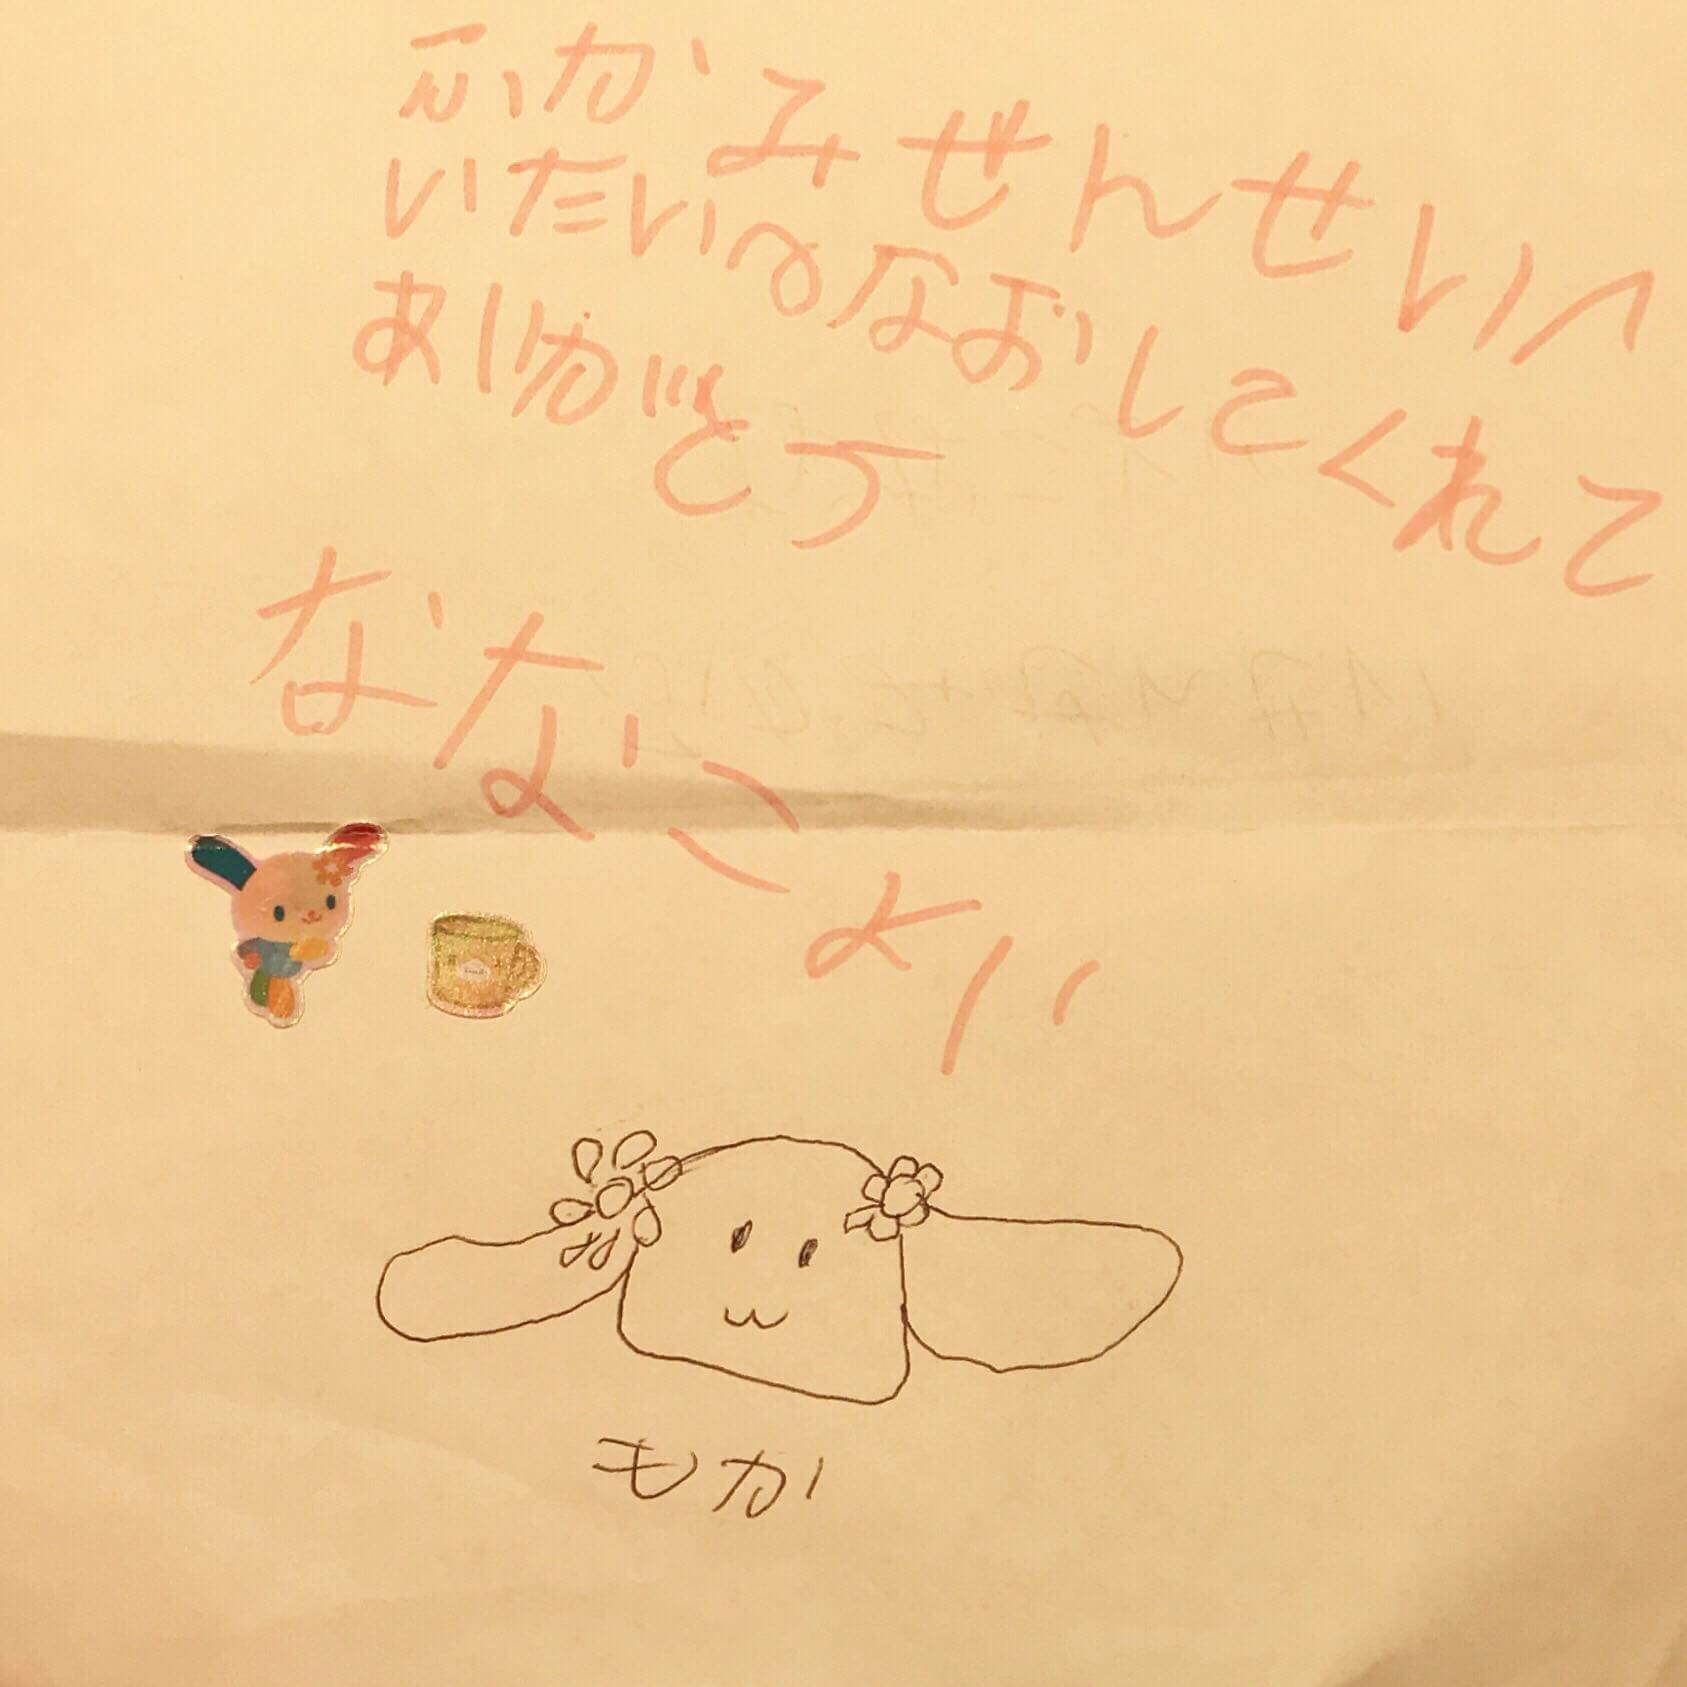 ふかみぜんせいへ
いたいのなおしてくれて
ありがとう
ななこより
もか